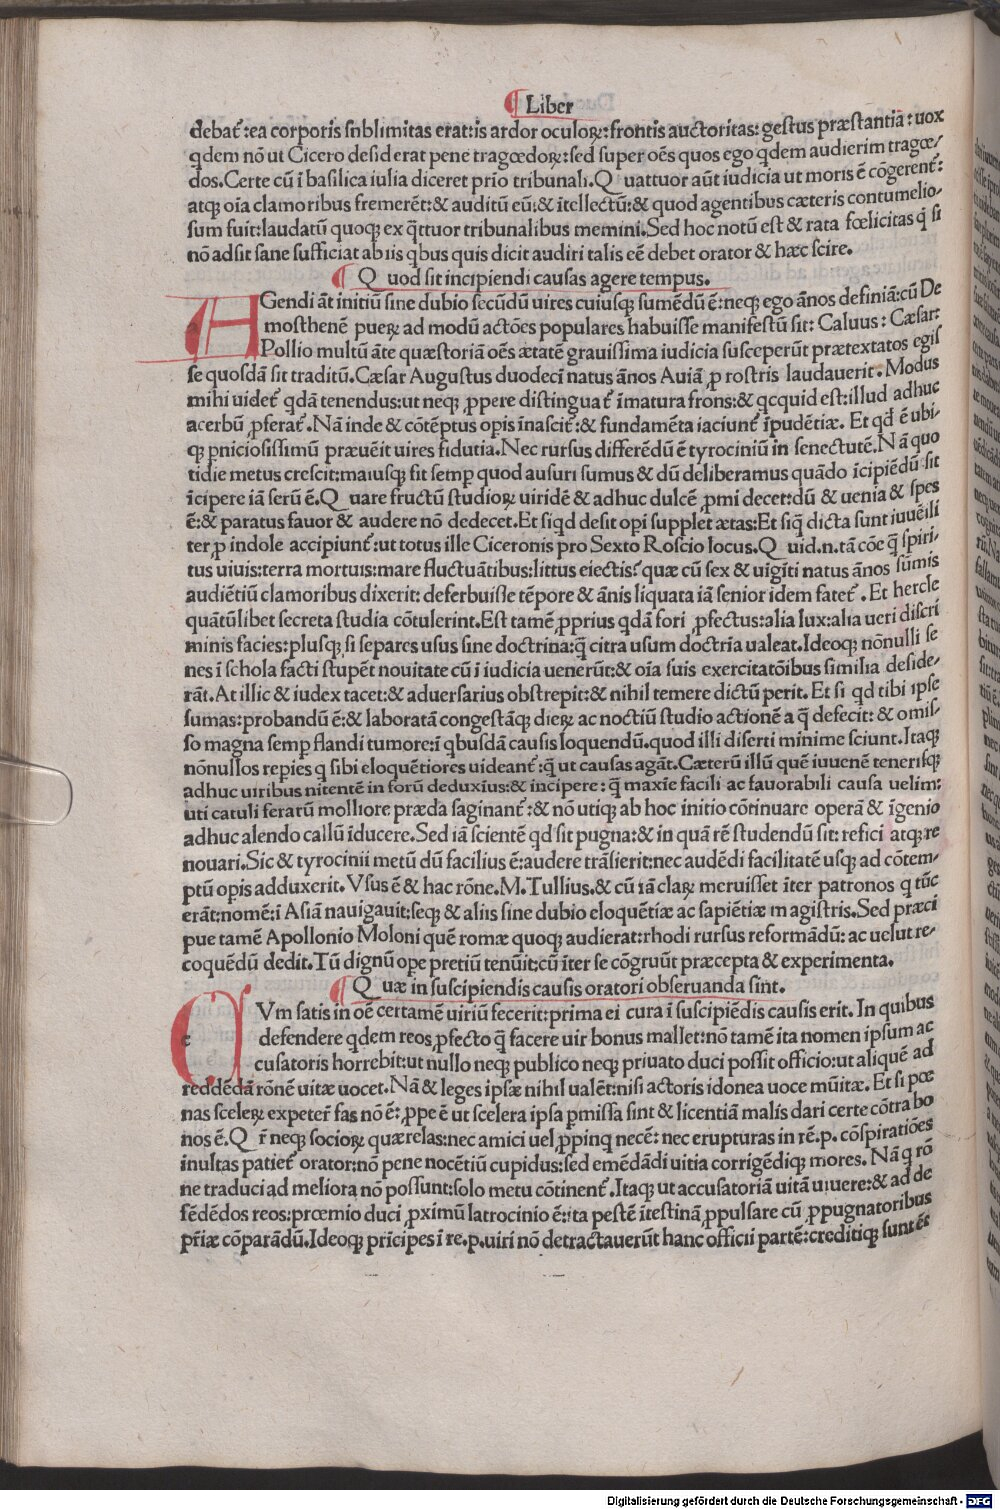 ¶ Liber
debat᷑:ea corporis snblimitas erat:is ardor oculoꝝ:frontis auctoritas:gestus præstantia:uox
qdem nō ut Cicero desiderat pene tragœdoꝝ:sed super oēs quos ego qdem audierim tragœ/
dos.Certe cū ī basilica iulia diceret prīo tribunali.Q uattuor aūt iudicia ut moris ē cōgerent᷑:
atqꝫ oīa clamoribus fremerēt:& auditū eū:& ītellectū:& quod agentibus cæteris contumelio-
sum fuit:laudatū quoqꝫ ex q̄ttuor tribunalibus memini.Sed hoc notū est & rata fœlicitas q̄ si
nō adsit sane sufficiat ab iis qbus quis dicit audiri talis eē debet orator & hæc scire.
¶ Q uod sit incipiendi causas agere tempus.
AGendi āt initiū sine dubio secūdū uires cuiusqꝫ sumēdū ē:neqꝫ ego ānos definiā:cū De
mosthenē pueꝝ ad modū actōes populares habuisse manifestū sit: Caluus: Cæsar:
Pollio multū āte quæstoriā oēs ætatē grauissima iudicia susceperūt prætextatos egis
se quosdā sit traditū.Cæsar Augustus duodecī natus ānos Auiā ꝓ rostris laudauerit.Modus
mihi uidet᷑ qdā tenendus:ut neqꝫ ꝓpere distinguat᷑ īmatura frons:& qcquid est:illud adhuc
acerbū ꝓferat᷑.Nā inde & cōtēptus opis īnascit᷑:& fundamēta iaciunt᷑ īpudētiæ. Et qd̓ ē ubi-
qꝫ ꝑniciosissimū præuēit uires fidutia.Nec rursus differēdū ē tyrociniū in senectutē.Nā quo
tidie metus crescit:maiusqꝫ fit semꝑ quod ausuri sumus & dū deliberamus quādo īcipiēdū sit
īcipere iā serū ē.Q uare fructū studioꝝ uiridē & adhuc dulcē ꝓmi decet:dū & uenia & spes
ē:& paratus fauor & audere nō dedecet.Et siqd desit opi supplet ætas:Et siq̄ dicta sunt iuuēili
ter ꝓ indole accipiunt᷑:ut totus ille Ciceronis pro Sexto Roscio locus.Q uid.n.tā cōe q̄ spiri-
tus uiuis:terra mortuis:mare fluctuātibus:littus eiectis?quæ cū sex & uigīti natus ānos sūmis
audiētiū clamoribus dixerit: deferbuisse tēpore & ānis liquata iā senior idem fatet᷑. Et hercle
quātūlibet secreta studia cōtulerint.Est tamē ꝓprius qdā fori ꝓfectus:alia lux:alia ueri discri
minis facies:plusqꝫ si separes usus sine doctrina:q̄ citra usum doctrīa ualeat.Ideoqꝫ nōnulli se
nes ī schola facti stupēt nouitate cū ī iudicia uenerūt:& oīa suis exercitatōibus similia deside-
rāt.At illic & iudex tacet:& aduersarius obstrepit:& nihil temere dictū perit. Et si qd tibi ipse
sumas:probandū ē:& laboratā congestāqꝫ dieꝝ ac noctiū studio actionē a q̄ defecit: & omis-
so magna semꝑ flandi tumore:ī qbusdā causis loquendū.quod illi diserti minime sciunt.Itaqꝫ
nōnullos repies q sibi eloquētiores uideant᷑:q̄ ut causas agāt.Cæterū illū quē iuuenē tenerisqꝫ
adhuc uiribus nitentē in forū deduxius:& incipere: q̄ maxīe facili ac fauorabili causa uelim:
uti catuli ferarū molliore præda saginant᷑:& nō utiqꝫ ab hoc initio cōtinuare operā & īgenio
adhuc alendo callū īducere.Sed iā scientē qd sit pugna:& in quā rē studendū sit: refici atqꝫ re
nouari.Sic & tyrocinii metū dū facilius ē:audere trāsierit:nec audēdi facilitatē usqꝫ ad cōtem-
ptū opis adduxerit.Vsus ē & hac rōne.M.Tullius.& cū iā claꝝ meruisset īter patronos q tūc
erāt:nomē:ī Asiā nauigauit:seqꝫ & aliis sine dubio eloquētiæ ac sapiētiæ magistris.Sed præci
pue tamē Apollonio Moloni quē romæ quoqꝫ audierat:rhodi rursus reformādū: ac uelut re-
coquēdū dedit.Tū dignū ope pretiū tenuīt:cū īter se cōgruūt præcepta & experimenta.
¶ Q uæ in suscipiendis causis oratori obseruanda sint.
CVm satis in oē certamē uiriū fecerit:prima ei cura ī suscipiēdis causis erit. In quibus
defendere qdem reos ꝓfecto q̄ facere uir bonus mallet:nō tamē ita nomen ipsum ac
cusatoris horrebit:ut nullo neqꝫ publico neqꝫ priuato duci possit officio:ut aliquē ad
reddēdā rōnē uitæ uocet.Nā & leges ipsæ nihil ualēt:nisi actoris idonea uoce mūitæ. Et si pœ
nas sceleꝝ expeter̄ fas nō ē:ꝓpe ē ut scelera ipsa ꝑmissa sint & licentiā malis dari certe cōtra bo
nos ē.Q r̄ neqꝫ socioꝝ quærelas:nec amici uel ꝓpinq necē: nec erupturas in rē.p.cōspiratiōes
inultas patiet᷑ orator:nō pene nocētiū cupidus:sed emēdādi uitia corrigēdiqꝫ mores. Nā q rō
ne traduci ad meliora nō possunt:solo metu cōtinent᷑.Itaqꝫ ut accusatoriā uitā uiuere:& ad de
fēdēdos reos:prœmio duci ꝓximū latrocinio ē:ita pestē ītestinā ꝓpulsare cū ꝓpugnatoribus
pr̄iæ cōparādū.Ideoqꝫ prīcipes ī re.p.uiri nō detractauerūt hanc officii partē:creditiqꝫ sunt ēt
Digitalisierung gefördert durch die Deutsche Forschungsgemeinschaft - DFG